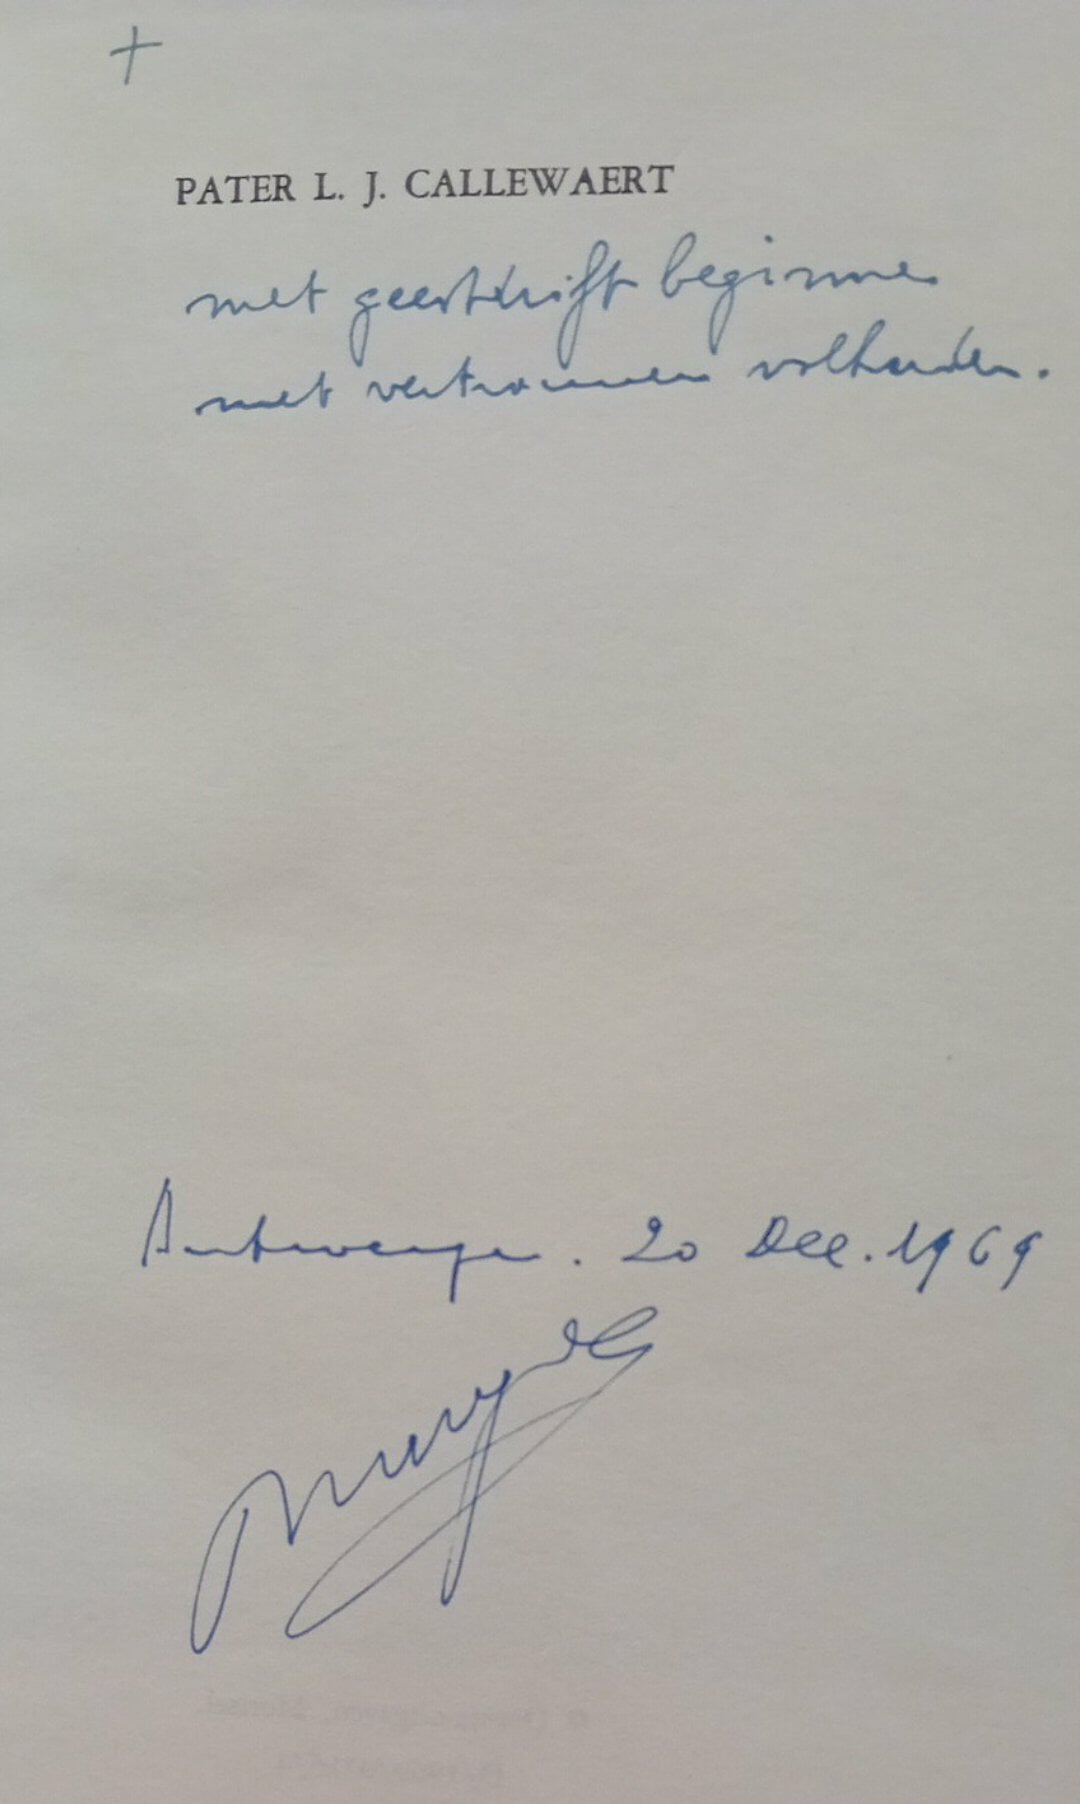 PATER L. J. CALLEWAERT
met geestdrift beginnen
met vertrouwen volharden.
Antwerpen. 20 Dec. 1969